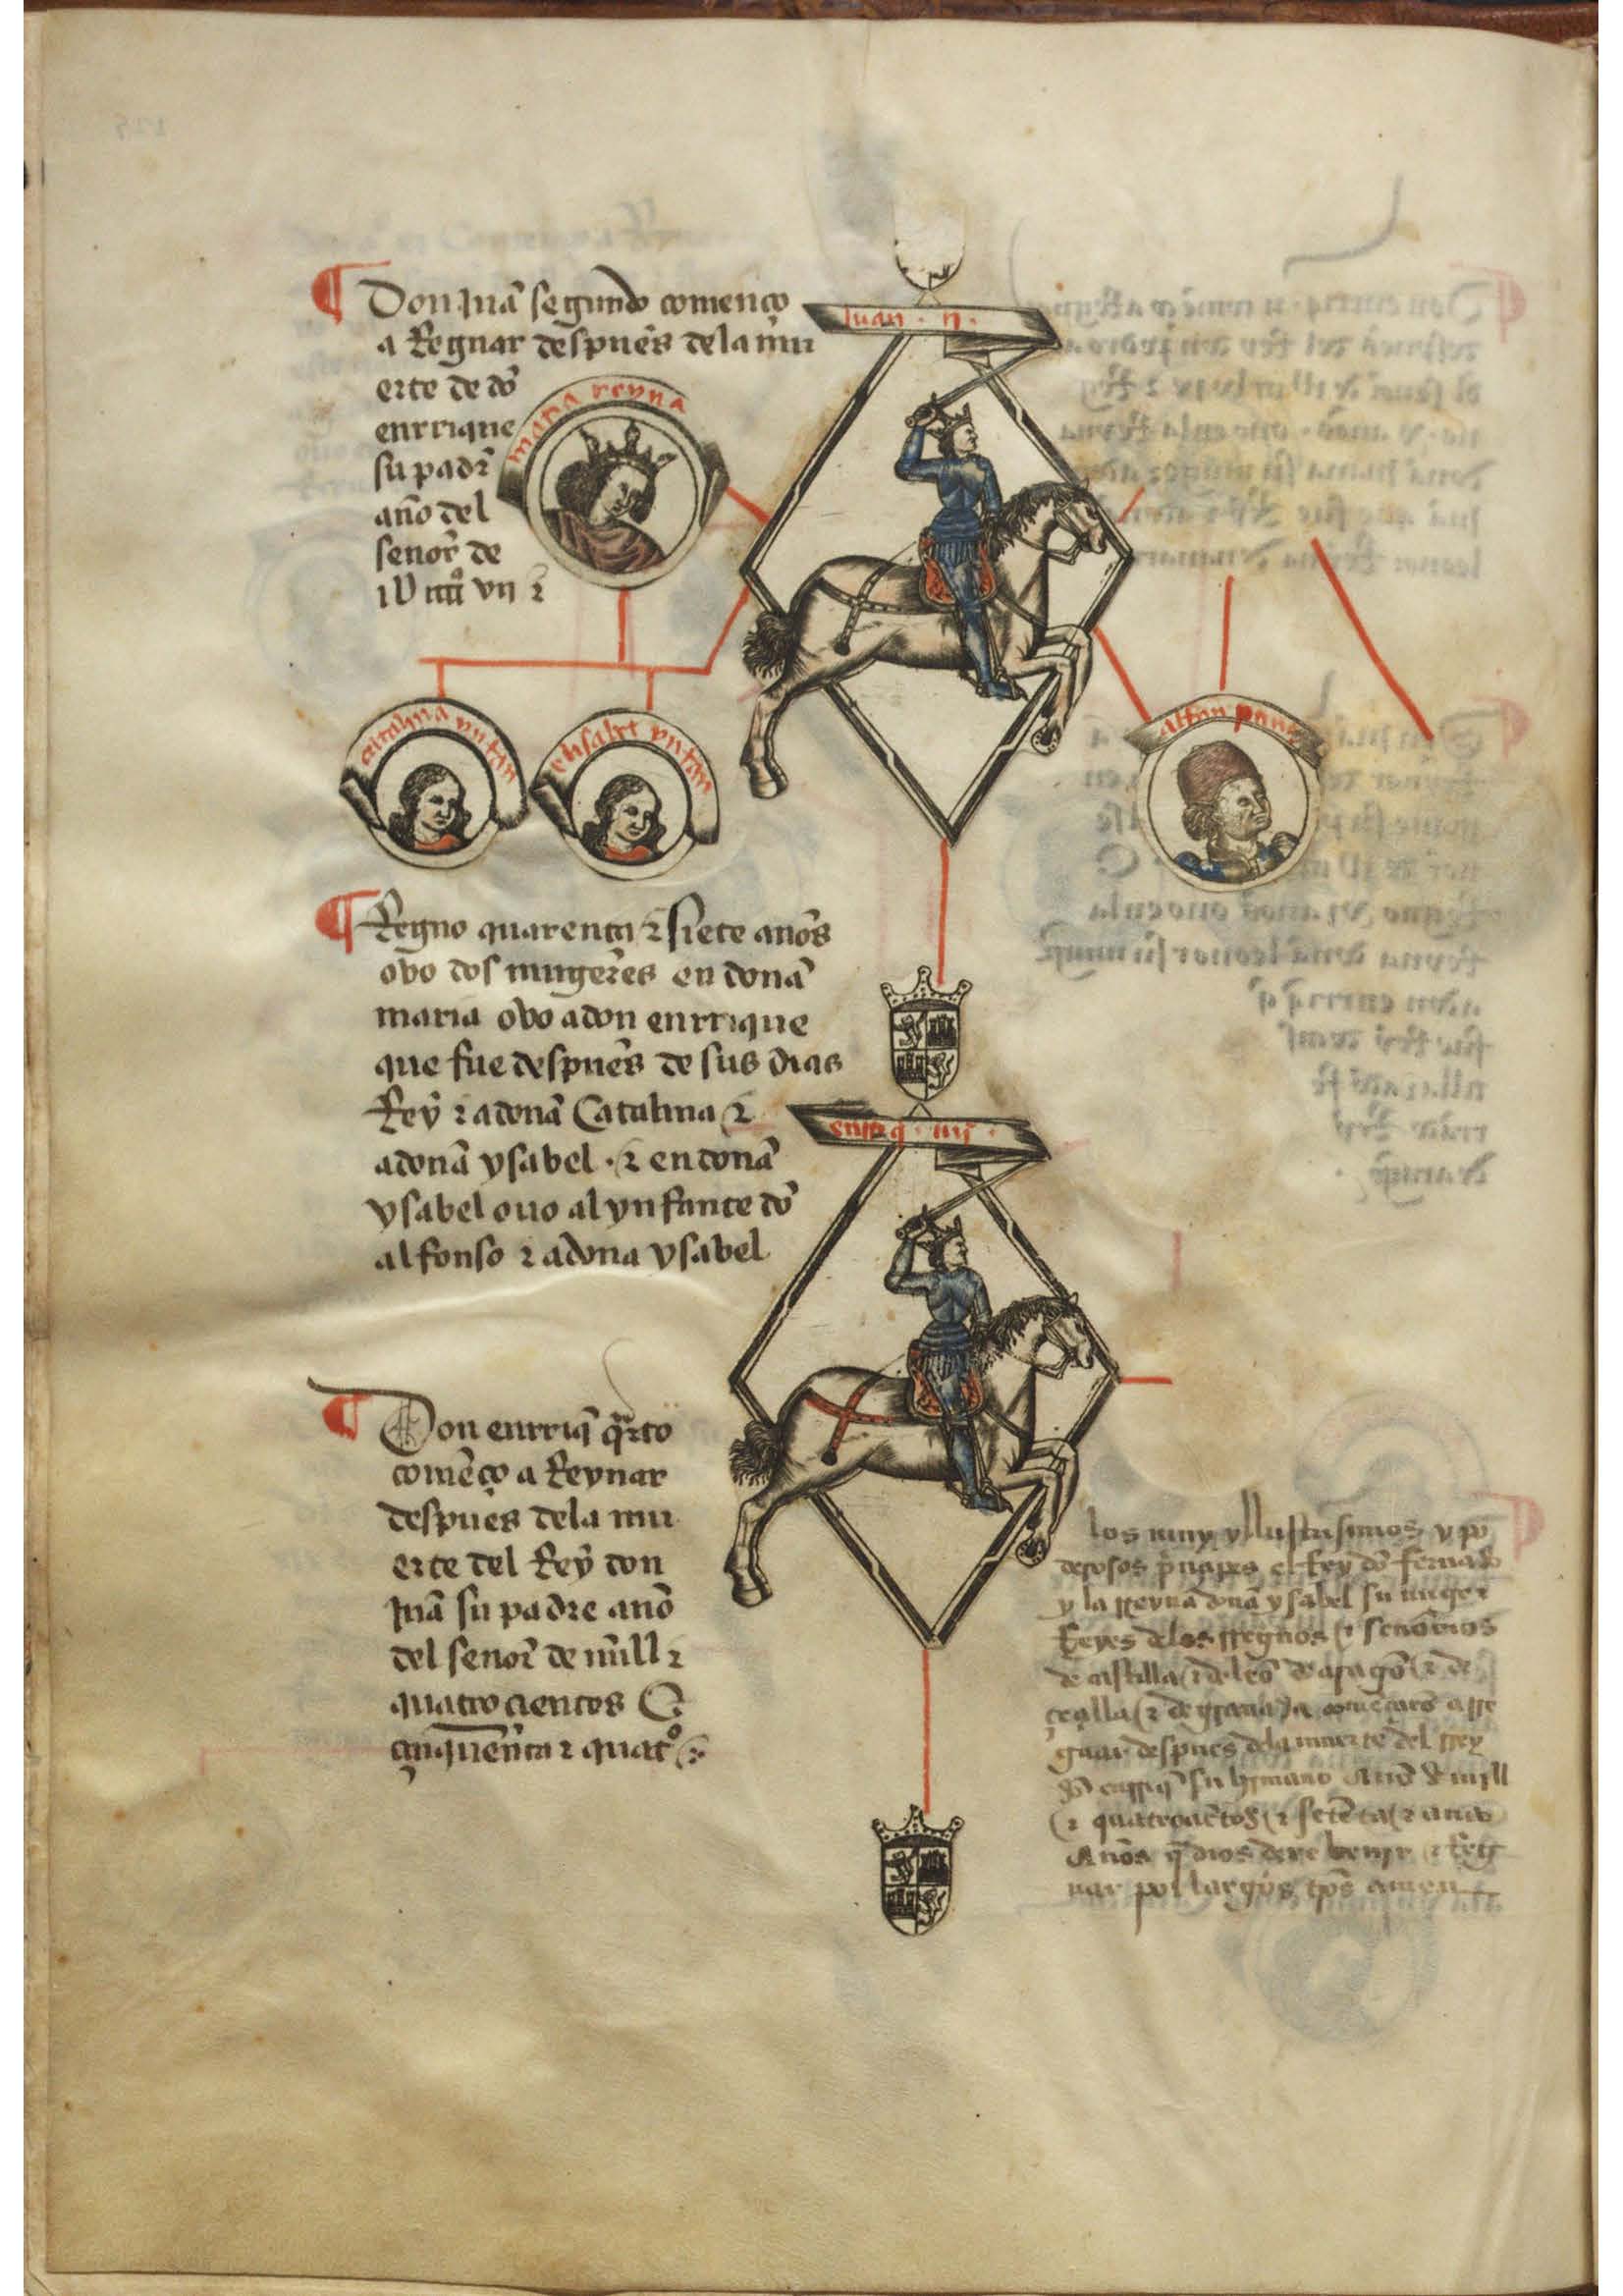 Juan · ii ·
¶ Don Juã segundo començo
a Regnar despues dela mu
erte de dõ
enrrique
su padr̃
año del
señor de
iU iiiiº vii ⁊
maria reyna
catalina ynfan
elisabet ynfan
alfon
¶ Regno quarenta ⁊ siete años
obo dos mugeres en doña
maria obo adon enrrique
que fue despues de sus dias
Rey ⁊ adoña Catalina ⁊
adoña ysabel · ⁊ en doña
ysabel ouo al ynfante dõ
alfonso ⁊ adona ysabel
enriq̃ · iiij ·
¶ Don enrriq̃ q̃rto
comẽço a Reynar
despues dela mu
erte del Rey don
Juã su padre año
del señor de mill ⁊
quatrocientos ⁊
çinquẽnta ⁊ quatº ⁊
los muy yllustrisimos y po
derosos p̃nçipes el Rey dõ fernãdo
y la rreyna doña ysabel su muger
Reyes delos rregnos ⁊ señorios
de castilla ⁊ de leõ de aragõ ⁊ de
⁊ de granada comẽçarõ a rre
gnar despues dela muerte del rrey
dõ enrriq̃ su hermano Año de mill
⁊ quatroçiẽtos ⁊ setẽta ⁊
Años q̃ dios dexe ⁊ Reg
nar por largos tp̃os amen